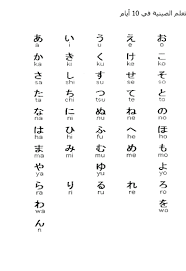 تعلم الصينية في 10 أيام
あ い う え お
a i u e o
か き く け こ
ka ki ku ke ko
さ し す せ そ
sa shi su se so
た ち つ て と
ta chi tsu te to
な に ぬ ね の
na ni nu ne no
は ひ ふ へ ほ
ha hi fu he ho
ま み む め も
ma mi mu me mo
や ゆ よ
ya yu yo
ら り る れ ろ
ra ri ru re ro
わ を
wa wo
ん
n